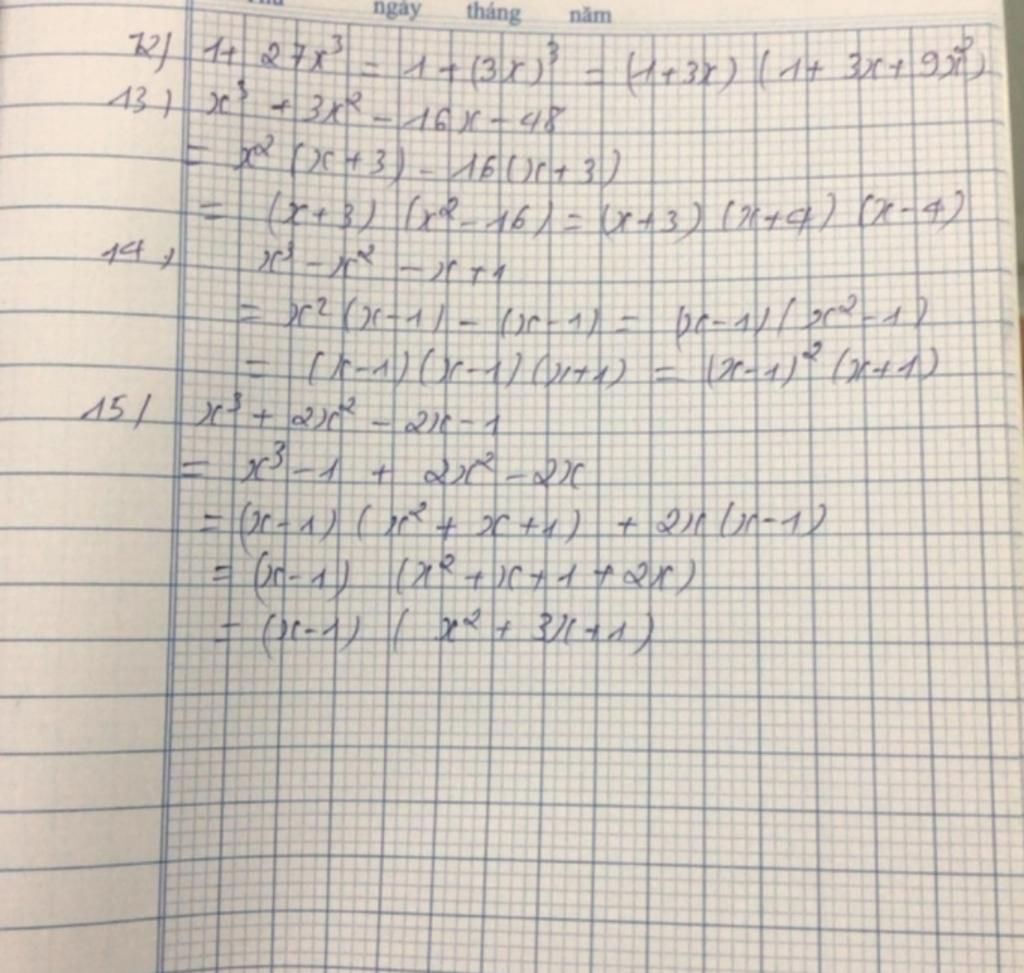 ngày tháng năm
12) 1 + 27x³ = 1 + (3x)³ = (1+3x) (1 + 3x + 9x²)
13) x³ + 3x² - 16x - 48
= x² (x+3) - 16(x+3)
= (x+3) (x² - 16) = (x+3) (x+4) (x-4)
14, x³ - x² - x + 1
= x² (x-1) - (x-1) = (x-1) (x² - 1)
= (x-1) (x-1) (x+1) = (x-1)² (x+1)
15/ x³ + 2x² - 2x - 1
= x³ - 1 + 2x² - 2x
= (x-1) (x² + x + 1) + 2x (x-1)
= (x-1) (x² + x + 1 + 2x)
= (x-1) ( x² + 3x + 1)